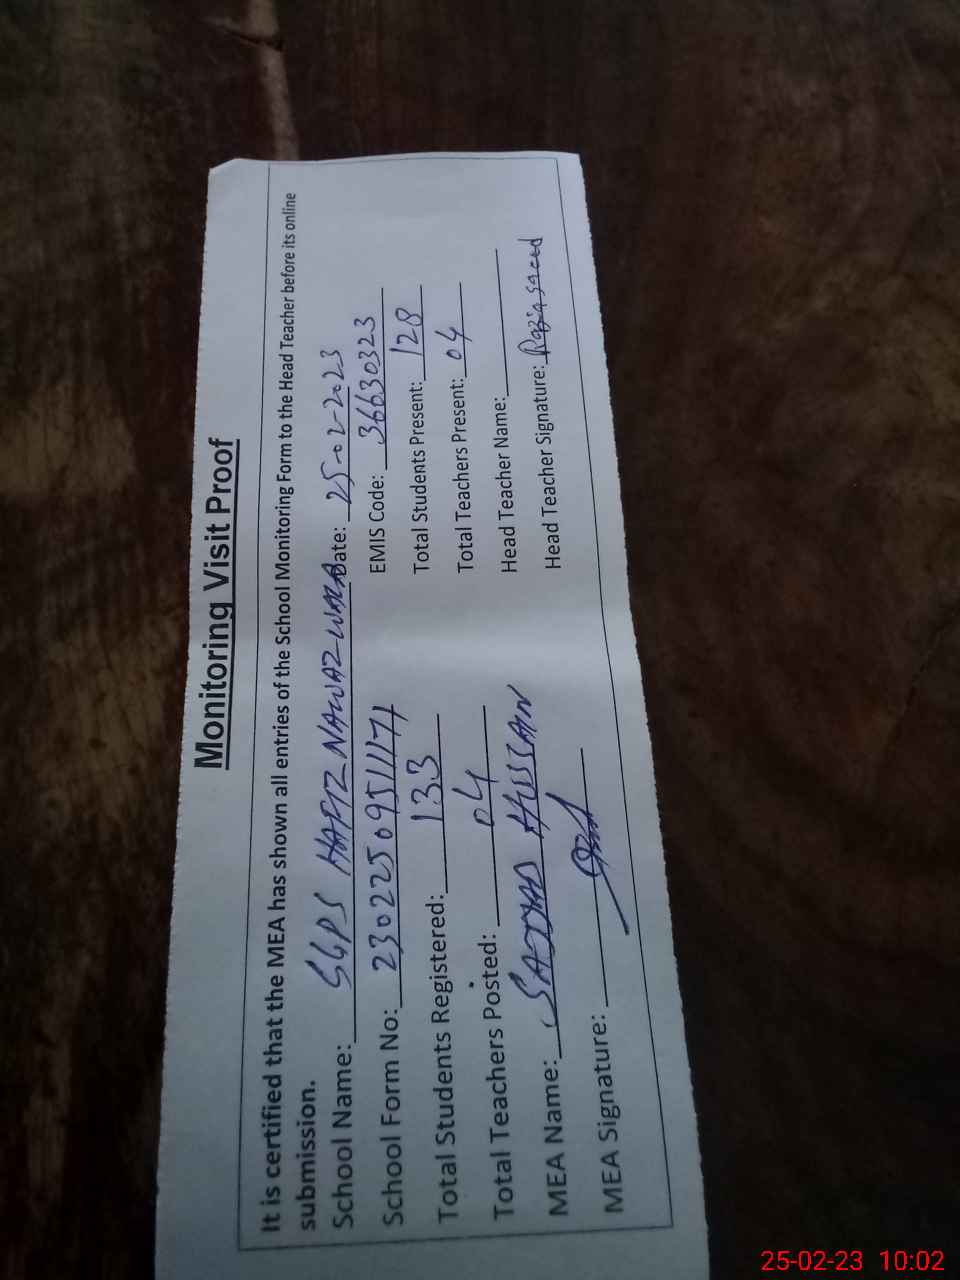 Monitoring Visit Proof
It is certified that the MEA has shown all entries of the School Monitoring Form to the Head Teacher before its online
submission.
School Name: SGPS HAFIZ NAWAZ WALA Date: 25-02-2023
School Form No: 230225095111171 EMIS Code: 36630323
Total Students Registered: 133 Total Students Present: 128
Total Teachers Posted: 04 Total Teachers Present: 04
MEA Name: SAJJAD HUSSAIN Head Teacher Name:
MEA Signature: Head Teacher Signature: Razia Saeed
25-02-23 10:02